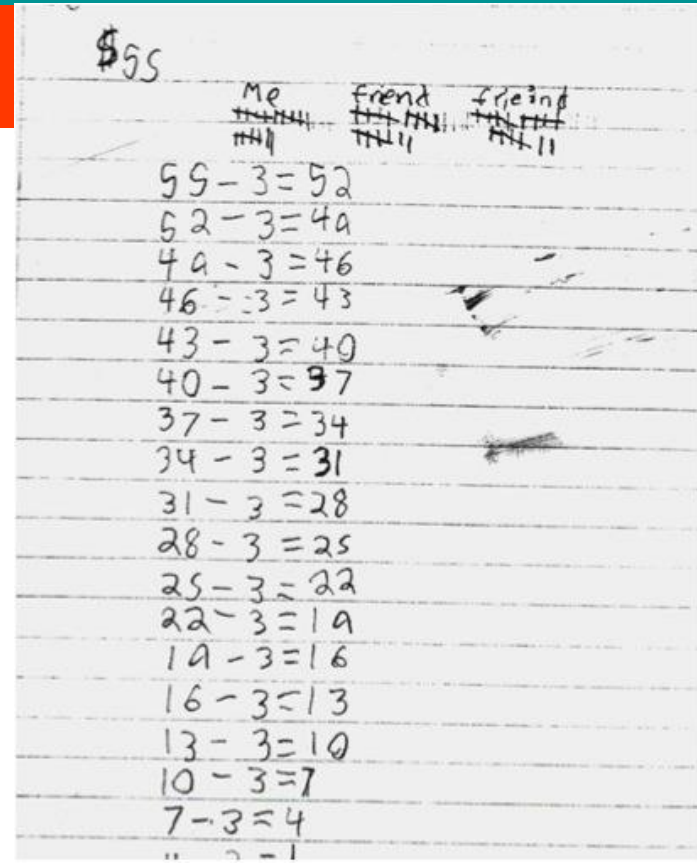 $55
Me friend frieind
55 - 3 = 52
52 - 3 = 49
49 - 3 = 46
46 - 3 = 43
43 - 3 = 40
40 - 3 = 37
37 - 3 = 34
34 - 3 = 31
31 - 3 = 28
28 - 3 = 25
25 - 3 = 22
22 - 3 = 19
19 - 3 = 16
16 - 3 = 13
13 - 3 = 10
10 - 3 = 7
7 - 3 = 4